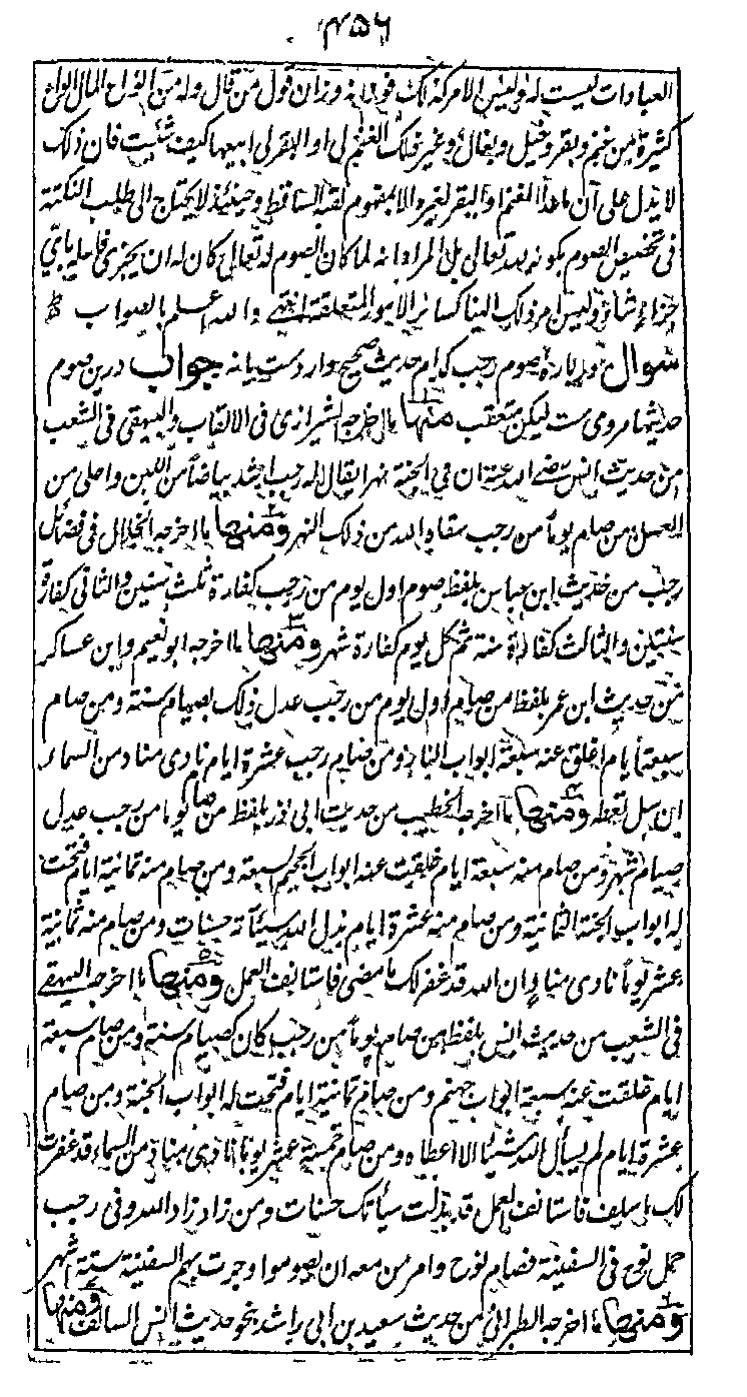 ۴۵۶
العبادات ليست له وليس الامر كذلك فوزانه وزان قول من قال وله من انواع المال انواع
كثيرة من غنم وبقر وخيل وبغال وغير ذلك الغنم لى او البقر لى ابيعها كيف شئت فان ذلك
لا يدل على ان ماعدا الغنم او البقر لغيره الا بمفهوم لقبه الساقط وحينئذ لا يحتاج الى طلب النكتة
فى تخصيص الصوم بكونه لله تعالى بل المراد انه لما كان الصوم له تعالى كان له ان يجزى فاعله باى
جزاء شاء وليس امر ذلك الينا كسائر الامور المتعلقة انتهى والله اعلم بالصواب
سوال در باره صوم رجب كدام حديث صحيح وارد ست يا نه جواب درين صوم
حديثها مروى ست ليكن متعقب منها ما اخرجه الشيرازى فى الالقاب والبيهقى فى الشعب
من حديث انس رضى الله عنه ان فى الجنة نهرا يقال له رجب اشد بياضا من اللبن واحلى من
العسل من صام يوما من رجب سقاه الله من ذلك النهر ومنها ما اخرجه الخلال فى فضائل
رجب من حديث ابن عباس بلفظ صوم اول يوم من رجب كفارة ثلث سنين والثانى كفارة
سنتين والثالث كفارة سنة ثم كل يوم كفارة شهر ومنها ما اخرجه ابو نعيم وابن عساكر
من حديث ابن عمر بلفظ من صام اول يوم من رجب عدل ذلك بصيام سنة ومن صام
سبعة ايام اغلق عنه سبعة ابواب النار ومن صام رجب عشرة ايام نادى مناد من السماء
ان سل تعطه ومنها ما اخرجه الخطيب من حديث ابى ذر بلفظ من صام يوما من رجب عدل
صيام شهر ومن صام منه سبعة ايام غلقت عنه ابواب الجحيم السبعة ومن صام منه ثمانية ايام فتحت
له ابواب الجنة الثمانية ومن صام منه عشرة ايام بدل الله سيئاته حسنات ومن صام منه ثمانية
عشر يوما نادى مناد ان الله قد غفر لك ما مضى فاستانف العمل ومنها ما اخرجه البيهقى
فى الشعب من حديث انس بلفظ من صام يوما من رجب كان كصيام سنة ومن صام سبعة
ايام غلقت عنه سبعة ابواب جهنم ومن صام ثمانية ايام فتحت له ابواب الجنة ومن صام
عشرة ايام لم يسأل الله شيئا الا اعطاه ومن صام خمسة عشر يوما نادى مناد من السماء قد غفرت
لك ما سلف فاستانف العمل قد بدلت سيأتك حسنات ومن زاد زاد الله وفى رجب
حمل نوح فى السفينة فصام نوح وامر من معه ان يصوموا وجرت بهم السفينة ستة اشهر
ومنها ما اخرجه الطبرانى من حديث سعيد بن ابى راشد نحو حديث انس السالف ومنها